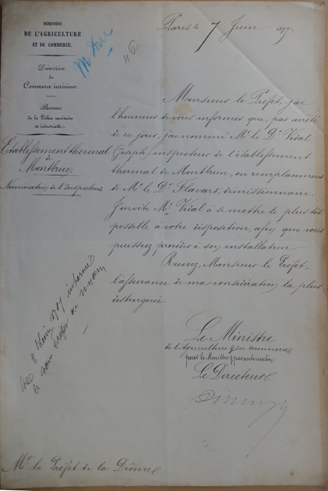 MINISTÈRE
DE L'AGRICULTURE
ET DU COMMERCE.
Direction
du
Commerce intérieur
Bureau
de la Police sanitaire
et industrielle
Etablissement thermal
de
Montbrun
Nomination de l'Inspecteur
Paris le 7 Juin 187
Monsieur le Préfet, j'ai
l'honneur de vous informer que, par arrêté
de ce jour, j'ai nommé M. le Dr Vidal
(Joseph) inspecteur de l'établissement
thermal de Montbrun, en remplacement
de M. le Dr Flavart, démissionnaire.
J'invite Mr Vidal à se mettre le plus tôt
possible à votre disposition, afin que vous
puissiez procéder à son installation.
Recevez, Monsieur le Préfet,
l'assurance de ma considération la plus
distinguée.
Le Ministre
de l'Agriculture & du Commerce
Le Directeur
8 Juin informé
Mr le Préfet de la Drôme